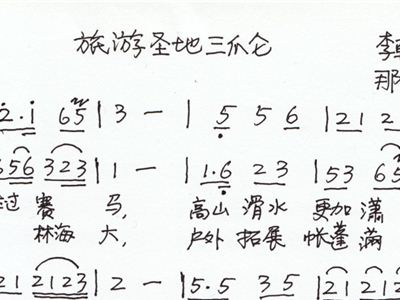 旅游圣地三爪仑
李
那
2.1 65 | 3 — | 5 5 6 | 21 2
656 323 | 1 — | 1.6 23 | 53 65
过赛 马, 高山 滑水 更加 潇
林海 大, 户外 拓展 帐蓬 满
21 2123 | 2 — | 5.5 35 | 21 212